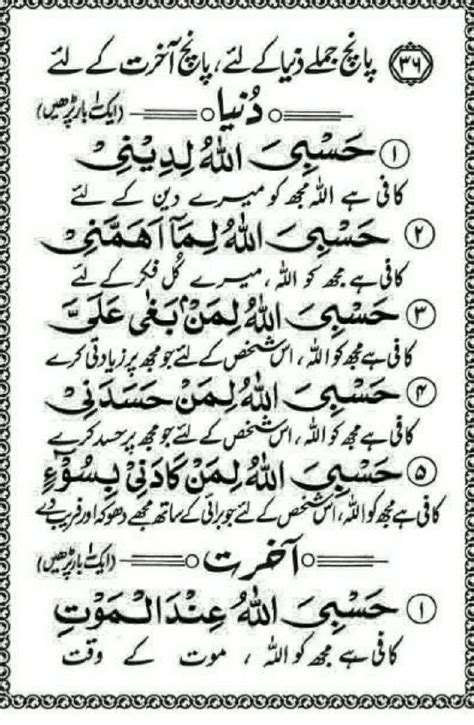 ۳۶ پانچ جملے دُنیا کے لئے ، پانچ آخرت کے لئے
دُنیا (ایک بار پڑھیں)
۱ حَسْبِیَ اللهُ لِدِیْنِیْ
کافی ہے اللہ مجھ کو میرے دین کے لئے
۲ حَسْبِیَ اللهُ لِمَآ اَهَمَّنِیْ
کافی ہے مجھ کو اللہ ، میرے کُل فکر کے لئے
۳ حَسْبِیَ اللهُ لِمَنْۢ بَغٰی عَلَیَّ
کافی ہے مجھ کو اللہ ، اس شخص کے لئے جو مجھ پر زیادتی کرے
۴ حَسْبِیَ اللهُ لِمَنْ حَسَدَنِیْ
کافی ہے مجھ کو اللہ ، اس شخص کے لئے جو مجھ پر حسد کرے
۵ حَسْبِیَ اللهُ لِمَنْ کَادَنِیْ بِسُوْٓءٍ
کافی ہے مجھ کو اللہ ، اس شخص کے لئے جو برائی کے ساتھ مجھے دھوکہ اور فریب دے
آخرت (ایک بار پڑھیں)
۱ حَسْبِیَ اللهُ عِنْدَ الْمَوْتِ
کافی ہے مجھ کو اللہ ، موت کے وقت